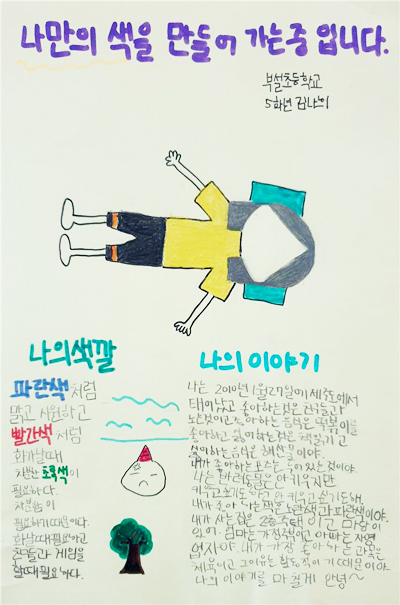 나만의 색을 만들어 가는중 입니다.
부설초등학교
5학년 김나의
나의색깔
파란색처럼
맑고 시원하고
빨간색처럼
화가날때
차분한 초록색이
필요하다.
차분함이
필요하기때문이다.
화날때필요하고
친구들과 게임을
할때필요하다.
나의 이야기
나는 2010년 1월27일에 제주도에서
태어났고 좋아하는것은 친구들과
노는것이고 좋아하는 음식은 떡볶이를
좋아하고 싫어하는것은 책읽기고
싫어하는음식은 해산물이야.
내가 좋아하는 포즈는 누워있는것이야.
나는 반려동물은 안키우지만
키우고싶기도 하고 안 키우고 싶기도해.
내가 좋아하는색은 노란색과 파란색이야.
내가 사는집은 2층주택 이고 마당이
있어. 엄마는 가정주부이고 아빠는 자영
업자야. 내가 가장 좋아하는 과목은
체육이고 그이유는 활동적이기 때문이야.
나의 이야기를 마칠게 안녕~